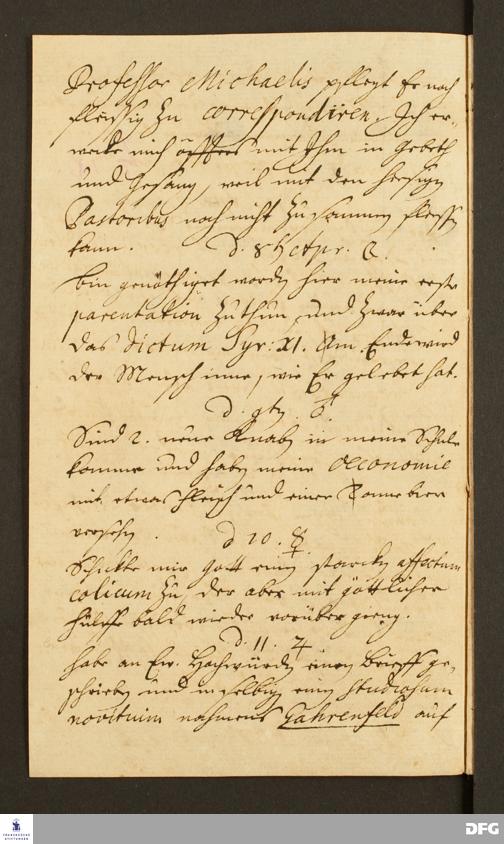 Professor Michaelis pflegt Er noch
fleissig zu correspondiren. Ich er-
wecke mich öffters mit Ihm in Gebeth
und Gesang, weil mit den hiesigen
Pastoribus noch nicht zusammen
kann. d. 8t Octpr. ☾.
bin genöthiget worden hier meine erste
parentation zu thun, und zwar über
das dictum Syr: XI. Am Ende wird
der Mensch inne, wie Er gelebet hat.
d. 9ten. ♂
Sind 2. neue Knaben in meine Schule
kommen und haben meine Oeconomie
mit etwas Fleisch und einer Tonne bier
versehen. d 10. ☿
Schickte mir Gott einen starcken affectum
colicum zu, der aber mit göttlicher
Hülffe bald wieder vorüber gieng.
d. 11. ♃
habe an Ew. Hochwürden einen Brieff ge-
schrieben und in selbigen einen Studiosum
novitium nahmens Fahrenfeld auf
FRANCKESCHE STIFTUNGEN
DFG